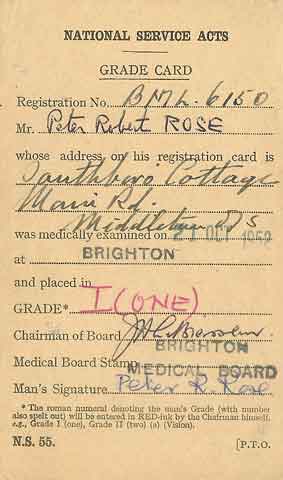 NATIONAL SERVICE ACTS
GRADE CARD
Registration No. BML. 6150
Mr. Peter Robert ROSE
whose address on his registration card is
Southboro Cottage
Main Rd.
Middleton
was medically examined on 21 OCT 19
at BRIGHTON
and placed in
GRADE* I (ONE)
Chairman of Board
BRIGHTON
Medical Board Stamp
MEDICAL BOARD
Man's Signature Peter R. Rose
* The roman numeral denoting the man's Grade (with number
also spelt out) will be entered in RED ink by the Chairman himself,
e.g., Grade I (one), Grade II (two) (a) (Vision).
N.S. 55. [P.T.O.